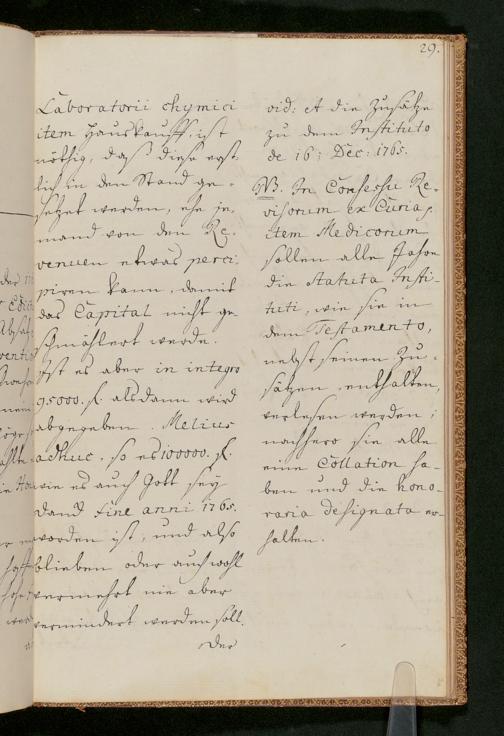 29.
Laboratorii chymici
item Hauskauff, ist
nöthig, daß diese erst-
lich in den Stand ge-
setzet werden, ehe je-
mand von den Re-
venuen etwas perci-
piren kann, damit
das Capital nicht ge-
schmählert werde.
Ist es aber in integro
95000. fl. alsdann wird
abgegeben. Melius
adhuc, so es 100000. fl.
wie es auch Gott sey
Danck fine anni 1765.
worden ist, und also
blieben oder auch wohl
vermehrt nie aber
vermindert werden soll.
Der
vid: et die Zusätze
zu dem Instituto
de 16: Dec: 1765.
NB. In Consessu Re-
visorum ex Curia,
item Medicorum
sollen alle Jahre
die Statuta Insti-
tuti, wie sie in
dem Testamento,
nebst seinen Zu-
sätzen, enthalten,
verlesen werden;
nachhero sie alle
eine Collation ha-
ben und die hono-
raria designata er-
halten.